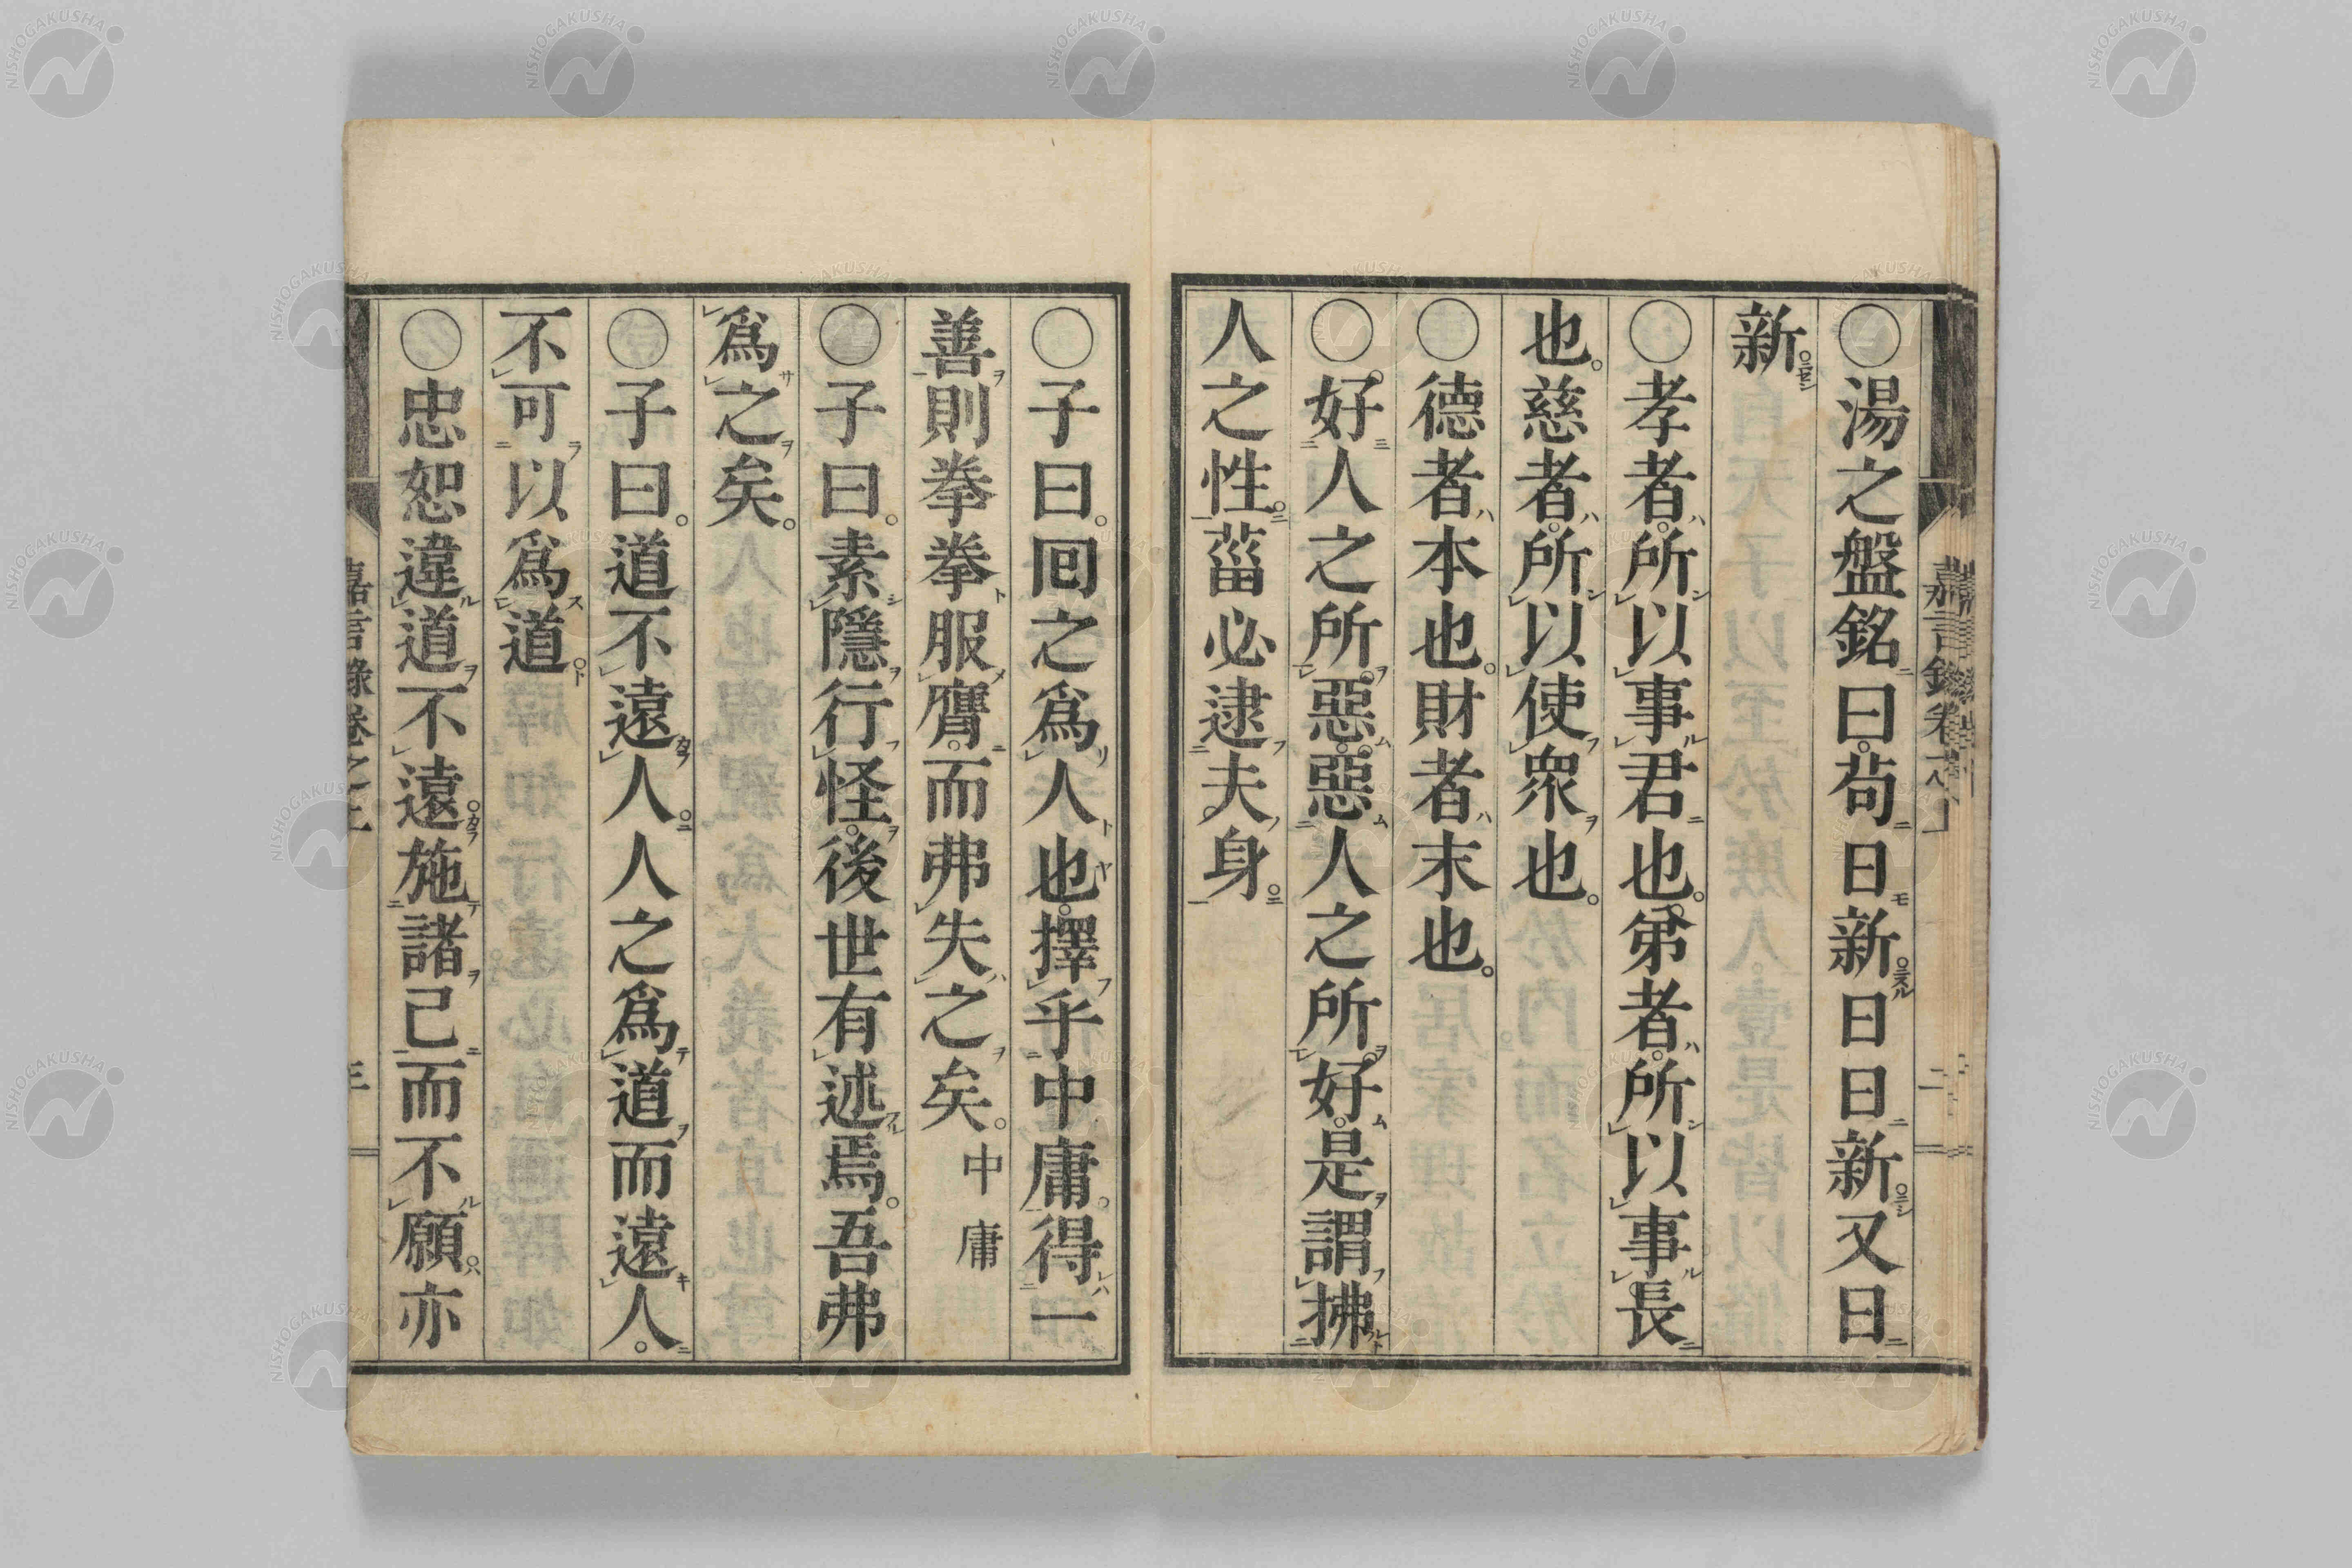 ○湯之盤銘曰苟日新日日新又日
新
○孝者所以事君也弟者所以事長
也慈者所以使衆也
○德者本也財者末也
○好人之所惡惡人之所好是謂拂
人之性菑必逮夫身
○子曰回之爲人也擇乎中庸得一
善則拳拳服膺而弗失之矣 中庸
○子曰素隱行怪後世有述焉吾弗
爲之矣
○子曰道不遠人人之爲道而遠人
不可以爲道
○忠恕違道不遠施諸己而不願亦
嘉言錄卷之上
NISHOGAKUSHA